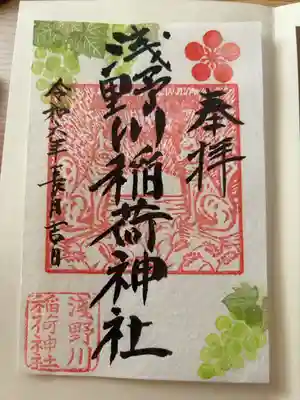 奉拝
浅野川稲荷神社
令和六年長月吉日
浅野川
稲荷神社